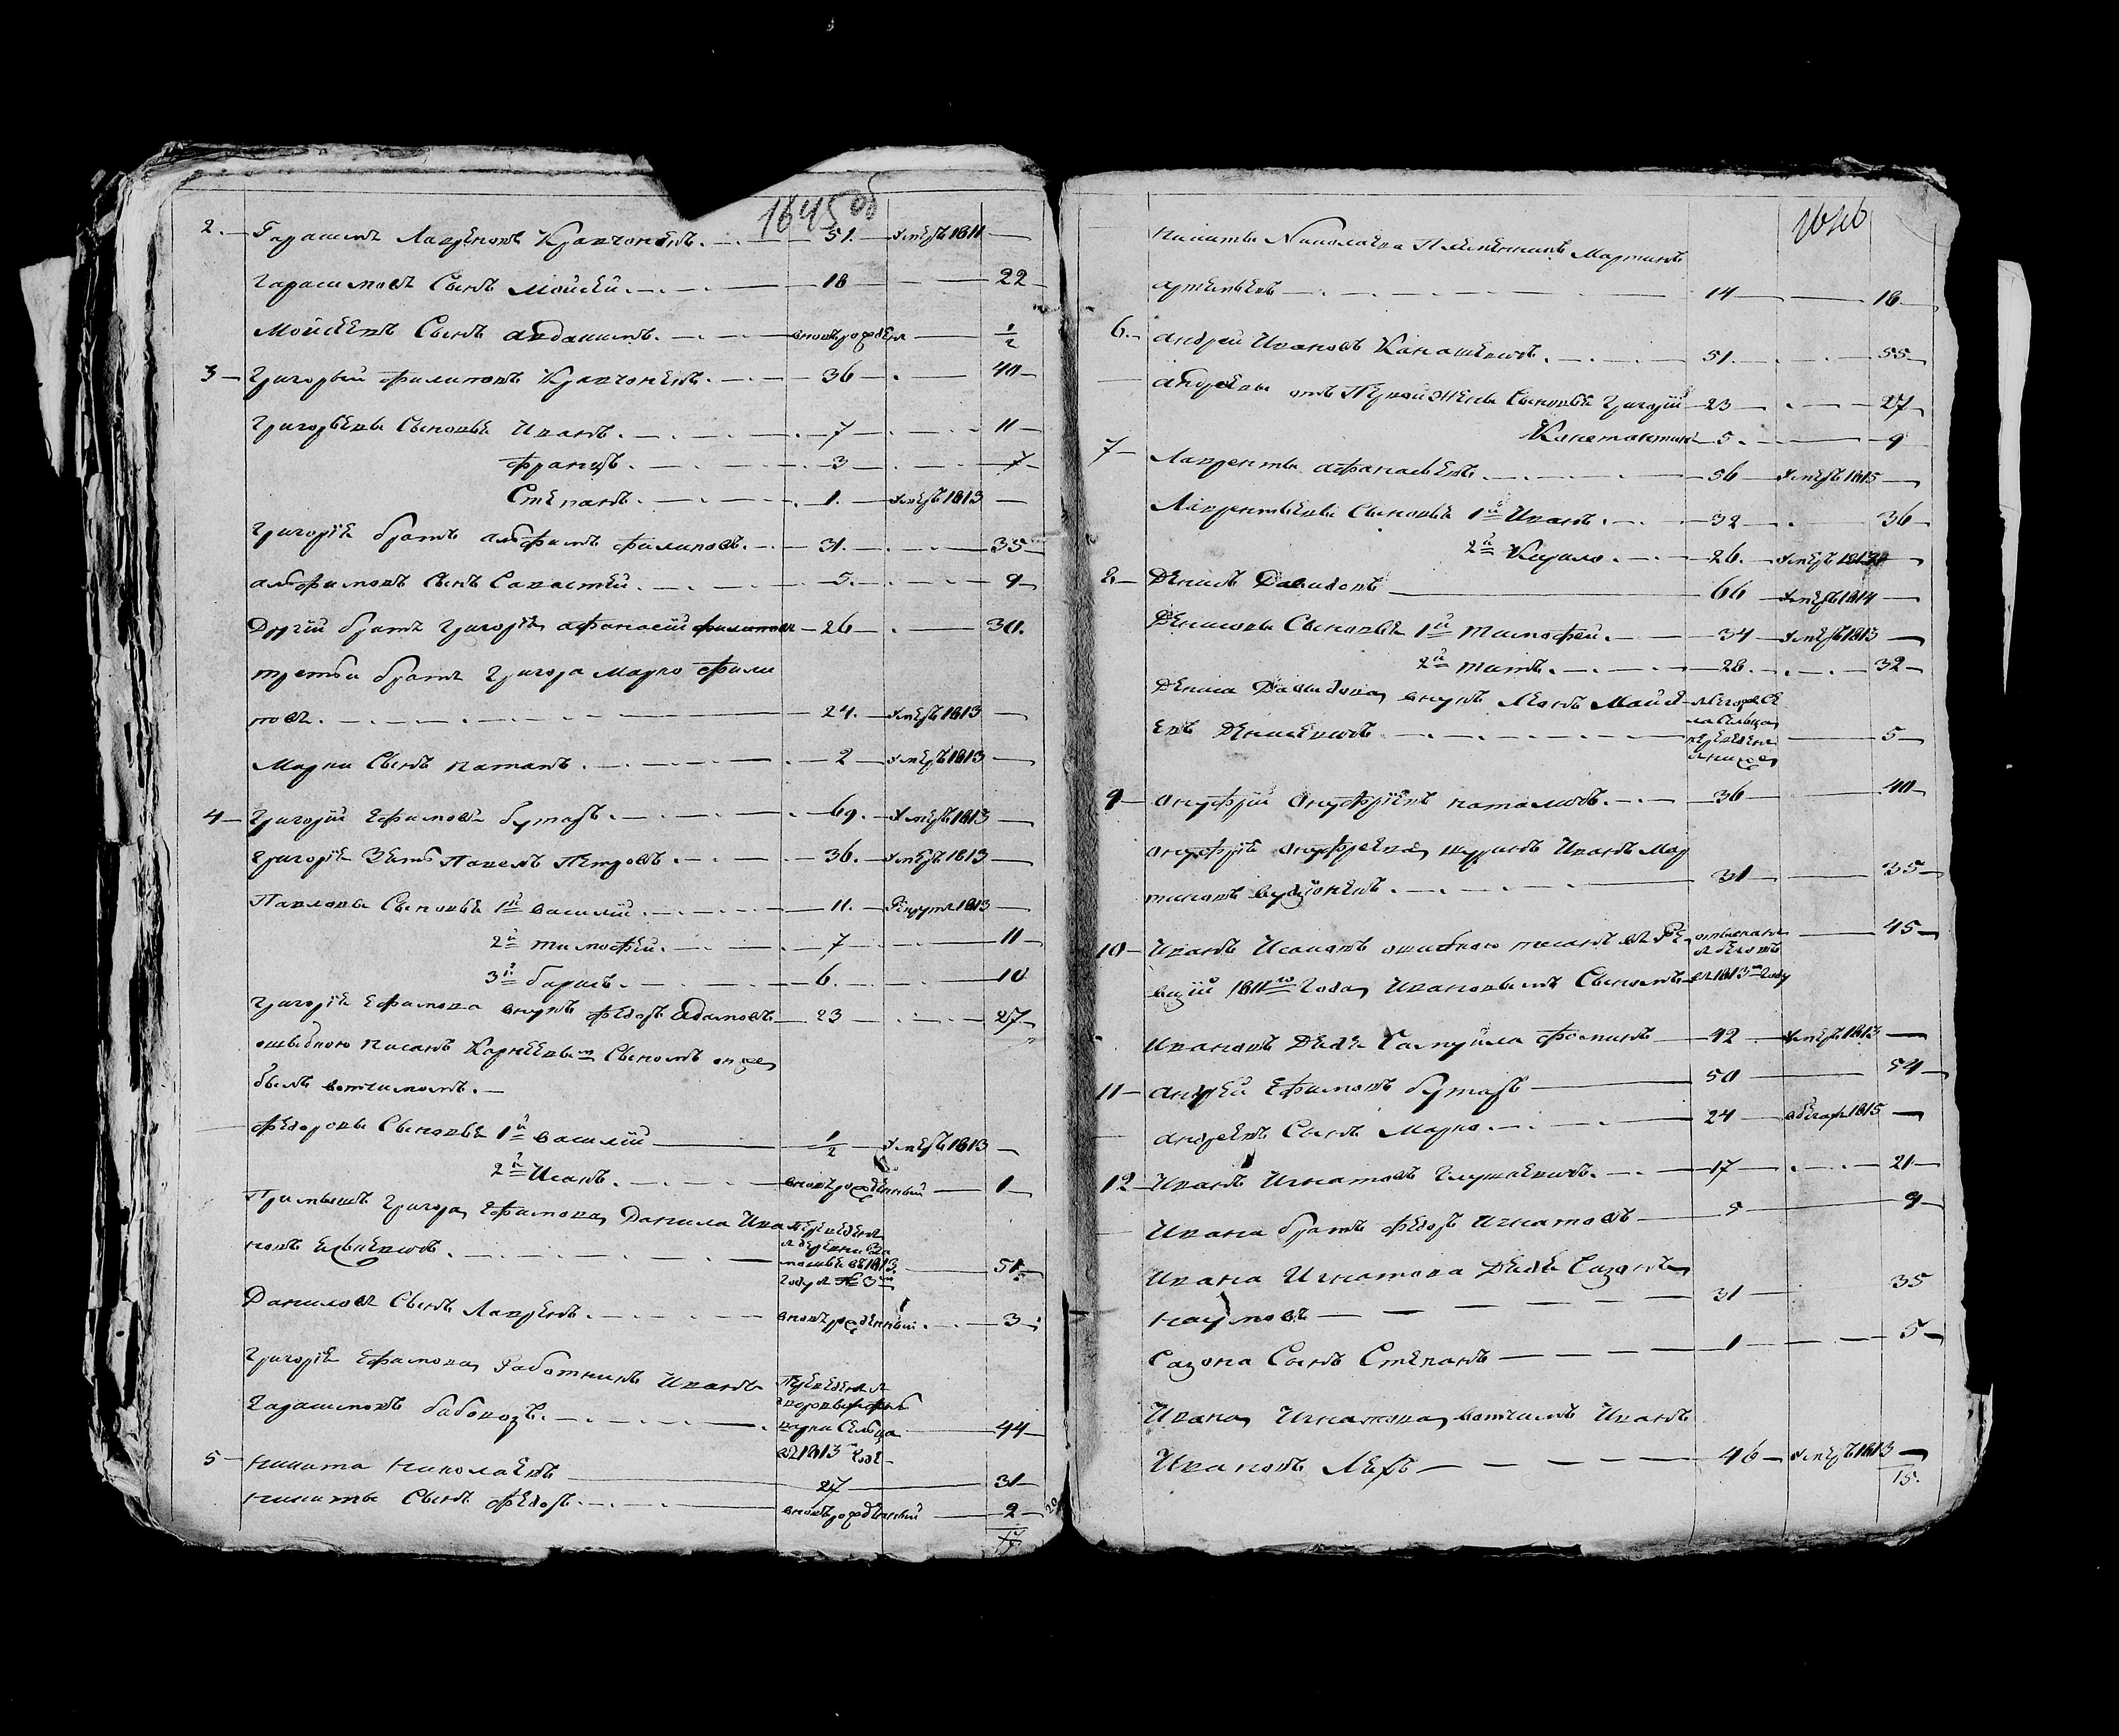 1645 об
2. Гарасимъ Лавреновъ Кравчонекъ. 51. умеръ 1811
Гарасимовъ Сынъ Мойсей. 18 22
Мойсеевъ Сынъ авдакимъ. вновьрожден 1/2
3 Григорьий Филиповъ Кравчонекъ. 36 40
Григорьевы Сыновья Иванъ. 7 11
Францъ. 3 7
Степанъ. 1. умеръ 1813
Григорія братъ алфимъ Филиповъ. 31. 35
алфимовъ Сынъ Савастей. 5. 9
Другій братъ Григорія афанасій филиповъ 26 30.
третьи братъ Григора Марко Фили
повъ. 24. умеръ 1813
Марки Сынъ паташъ. 2 умеръ 1813
4 Григорій Ефимовъ бутаръ. 69. умеръ 1813
Григорія Зять Павелъ Петровъ. 36. умеръ 1813
Павловы Сыновья 1й василій. 11. Рекрутъ 1813
2й тимофей. 7 11
3й барисъ. 6. 10
Григорія Ефимова внукъ федоръ адамовъ 23 27
ошибкою писанъ Карнеевым Сыномъ онже
былъ вотчимомъ.
Федоровы Сыновья 1й василій 1/2 умеръ 1813
2й Исакъ. вновьрожденный 1
Примышъ Григора Ефимова Данила Ива переведен
новъ 51
въ 1813
году № 3
Даниловъ Сынъ Лавренъ. вновьрожденный. 3
Григорія Ефимова Работникъ Иванъ переведен
Гарашимовъ 44
Сельца
въ 1813 годе
5 Никита Николаевъ 27 31
никиты Сынъ федоръ. вновьрожденный 2
17
1646
никиты Николаева Племенникъ Мартинъ
артемьевъ 14 18
6. андрей Ивановъ Канашевичъ. 51. 55
андреевы отъ Первой жены Сыновья Григорій 23 27
Константинъ 5. 9
7 Лаврентьи афанасьевъ. 56 умеръ 1815
Лаврентьевы Сыновья 1й Иванъ. 32 36
2й Кирило. 26. умеръ
8 Денисъ Давидовъ 66 умеръ 1814
Денисовы Сыновья 1й Тимофей. 34 умеръ 1813
2й титъ. 28. 32
Дениса Давыдова внукъ Леонъ Мойсе
евъ Денисевичъ 5
Сельца
переведен
9 онуфрій онуфріевъ паташовъ. 36 40
онуфрія онуфреева шуринъ Иванъ Мар
тиновъ 31 35
10 Иванъ Исаковъ ошибкою писанъ въ Ре 45
визіи 1811го Года Ивановымъ Сыномъ въ 1813м году
Ивановъ Дядя Самуйла Фоминъ 42 умеръ 1813
11 андрей Ефимовъ бутаръ 50 54
андреевъ Сынъ Марко. 24 1815
12 Иванъ Игнатовъ Глушневичъ. 17 21
Ивана братъ федоръ Игнатовъ 5 9
Ивана Игнатова Дядя Сазонъ
наумовъ 31 35
Сазона Сынъ Степанъ 1 5
Ивана Игнатова вотчимъ Иванъ
Ивановъ 46 умеръ 1813
15.